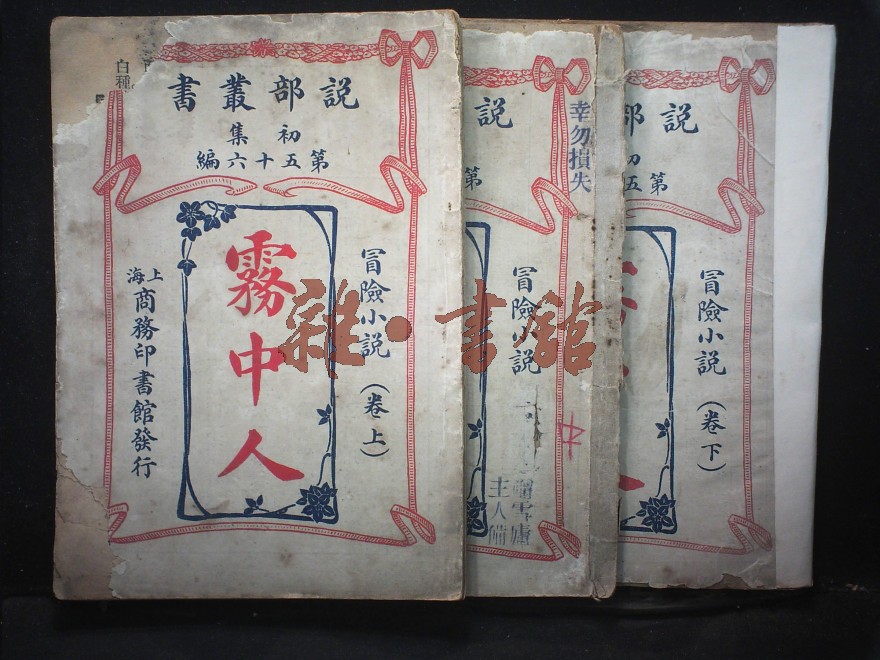 白種
説部叢書
初集
第五十六編
冒險小説（卷上）
霧中人
上海商務印書館發行
説
第
幸勿損失
冒險小説
中
雪廬
主人
説部
初
第五
冒險小説（卷下）
雜·書館